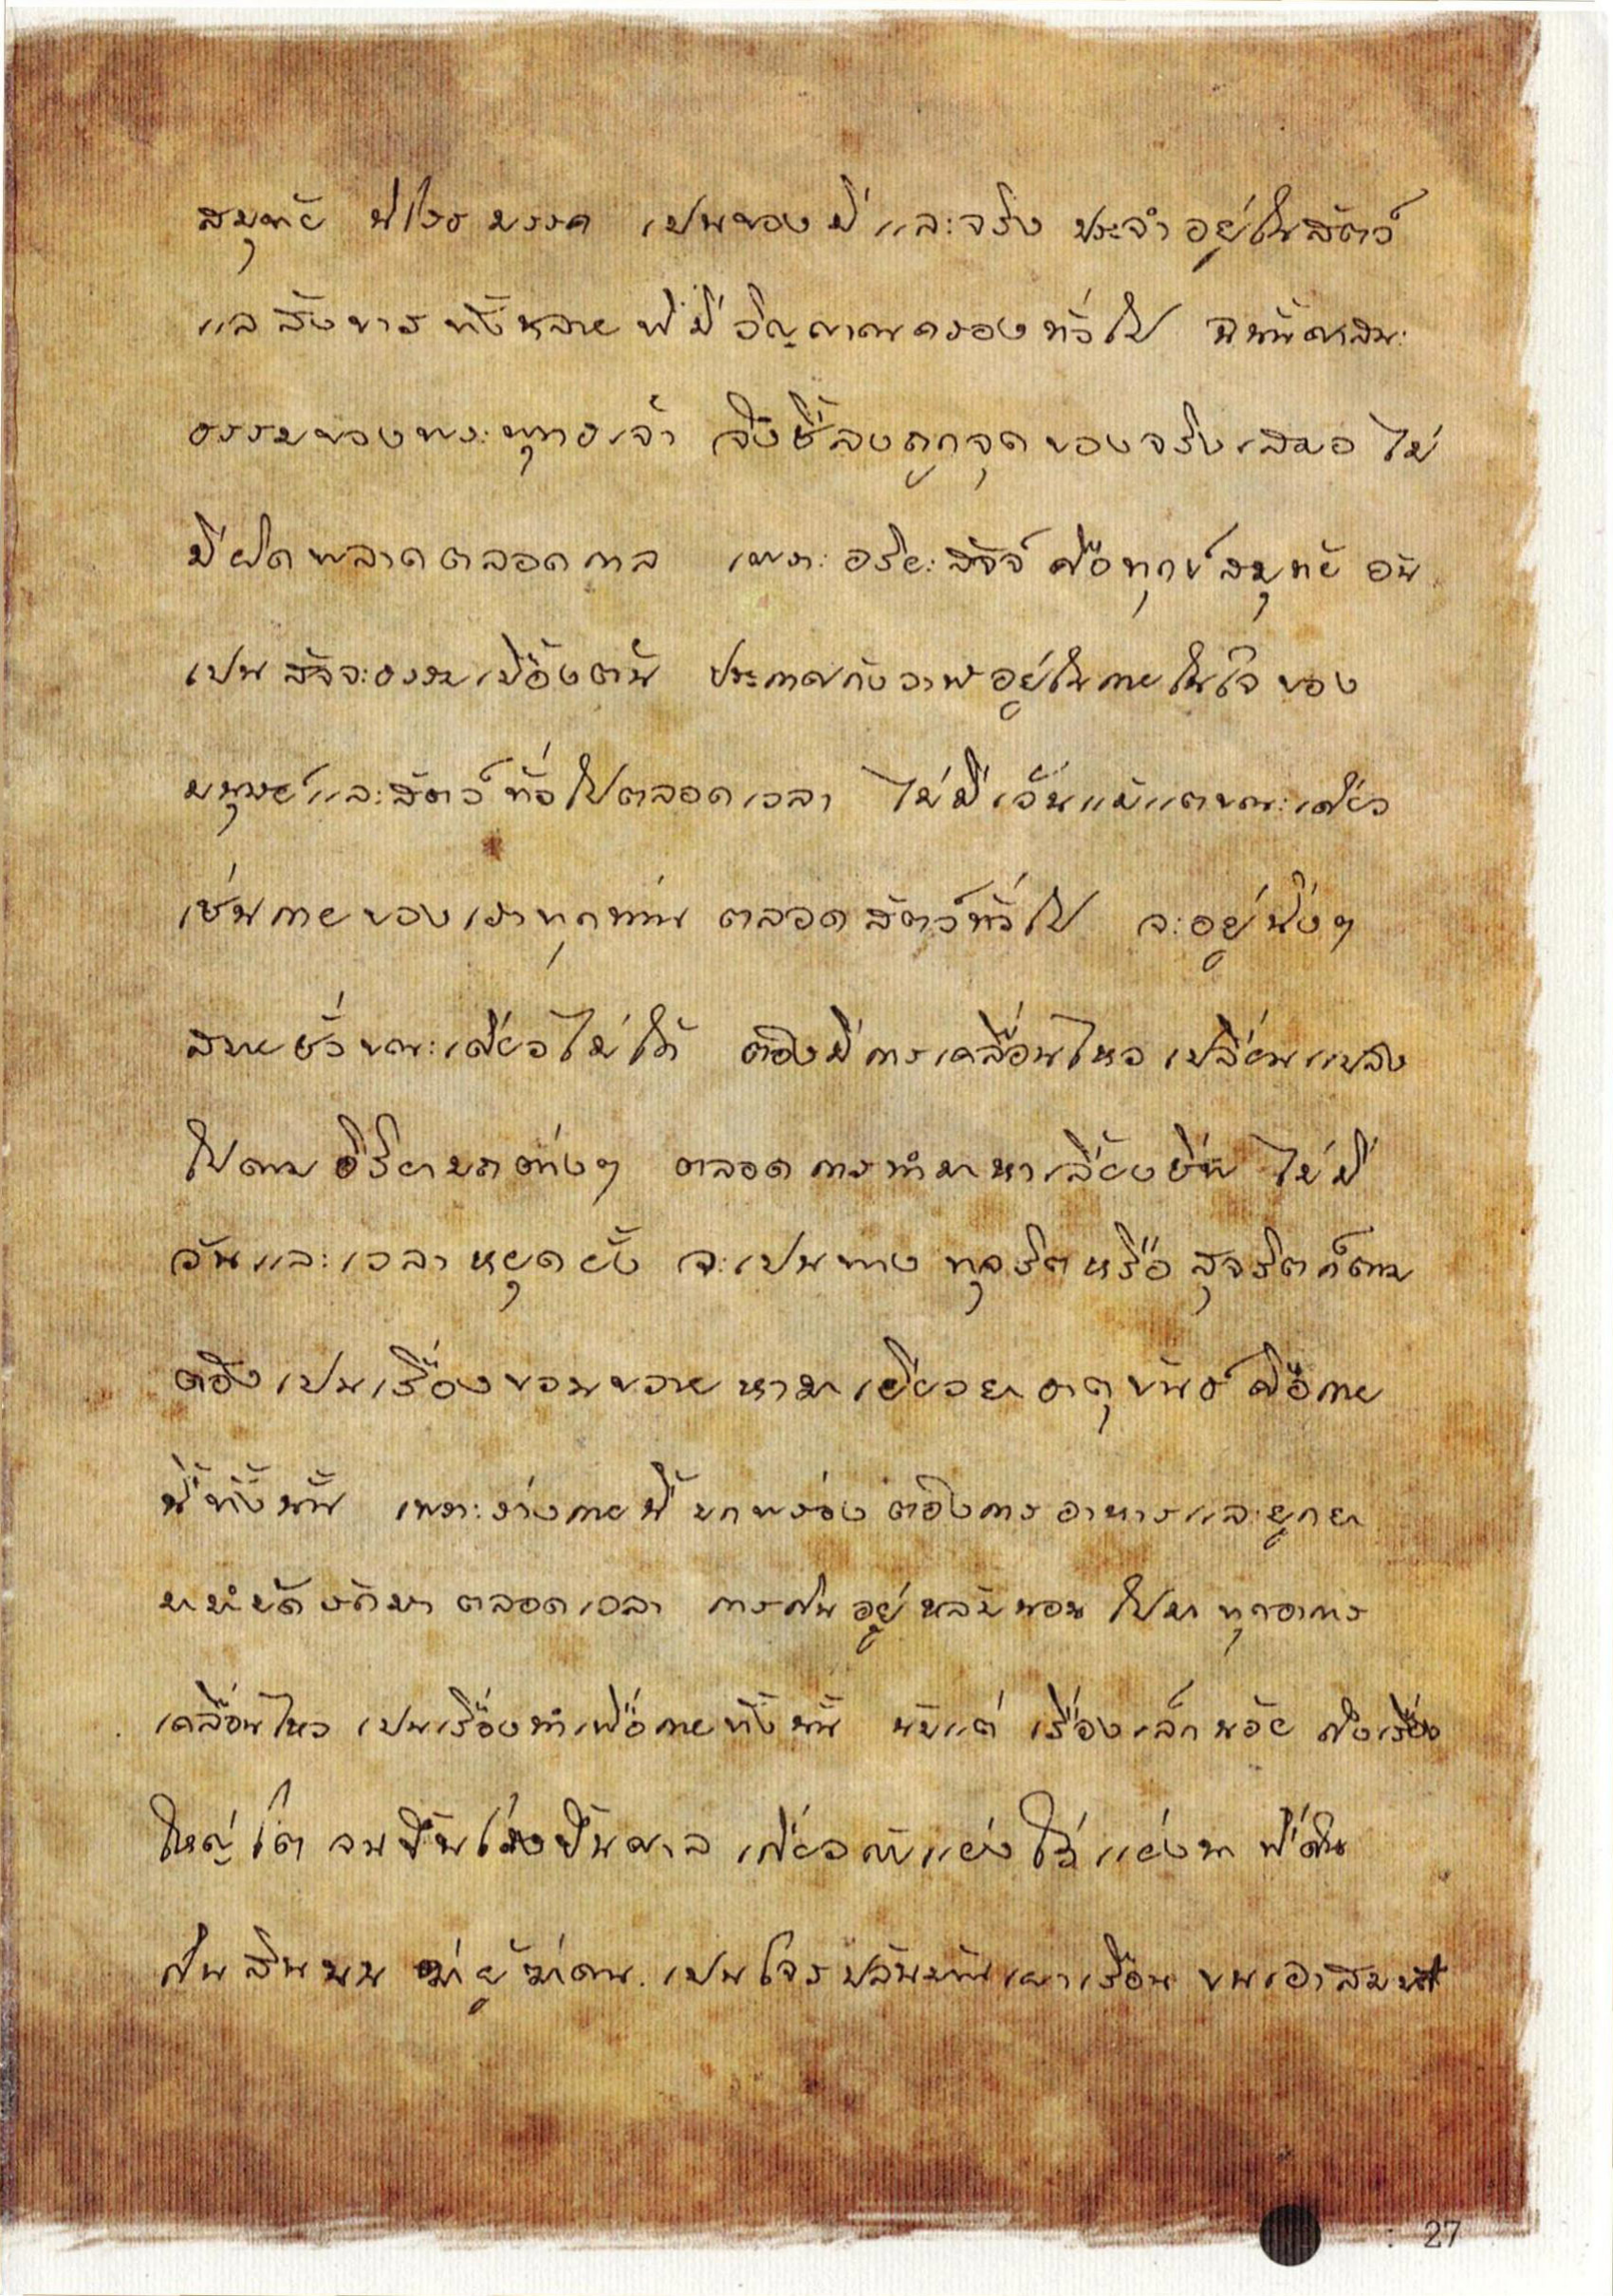 สมุทัย นิโรธ มรรค เปนของมีและจริง ประจำอยู่ในสัตว์
แลสังขารทั้งหลายที่มีวิญญาณครองทั่วไป ฉนั้นศาสนะ
ธรรมของพระพุทธเจ้า จึงชี้ลงถูกจุดของจริงเสมอ ไม่
มีผิดพลาดตลอดกาล เพราะอริยะสัจจ์ คือทุกข์สมุทัย อัน
เปนสัจจะธรรมเบื้องต้น ประกาศกังวานอยู่ในกายในใจของ
มนุษย์และสัตว์ทั่วไปตลอดเวลา ไม่มีเว้นแม้แตขณะเดียว
เช่นกายของเราทุกท่าน ตลอดสัตว์ทั่วไป จะอยู่นิ่งๆ
สบายชั่วขณะเดียวไม่ได้ ต้องมีการเคลื่อนไหวเปลี่ยนแปลง
ไปตามอิริยาบถต่างๆ ตลอดการทำมาหาเลี้ยงชีพ ไม่มี
วันและเวลาหยุดยั้ง จะเปนทางทุจริตหรือสุจริตก็ตาม
ต้องเปนเรื่องขวนขวายหามาเยียวยาธาตุขันธ์คือกาย
นี้ทั้งนั้น เพราะร่างกายนี้บกพร่องต้องการอาหารและหยูกยา
มาบำบัดรักษาตลอดเวลา การกินอยู่หลับนอนไปมาทุกอาการ
เคลื่อนไหว เปนเรื่องทำเพื่อกายทั้งนั้น นับแต่เรื่องเล็กน้อย ถึงเรื่อง
ใหญ่โต จนขึ้นโรงขึ้นศาล เกี่ยวกับแย่งไร่แย่งนา ที่ดิน
กินสินบน ฆ่าผู้ฆ่าคน เปนโจรปล้นบ้านเผาเรือน ขนเอาสมบัติ
: 27